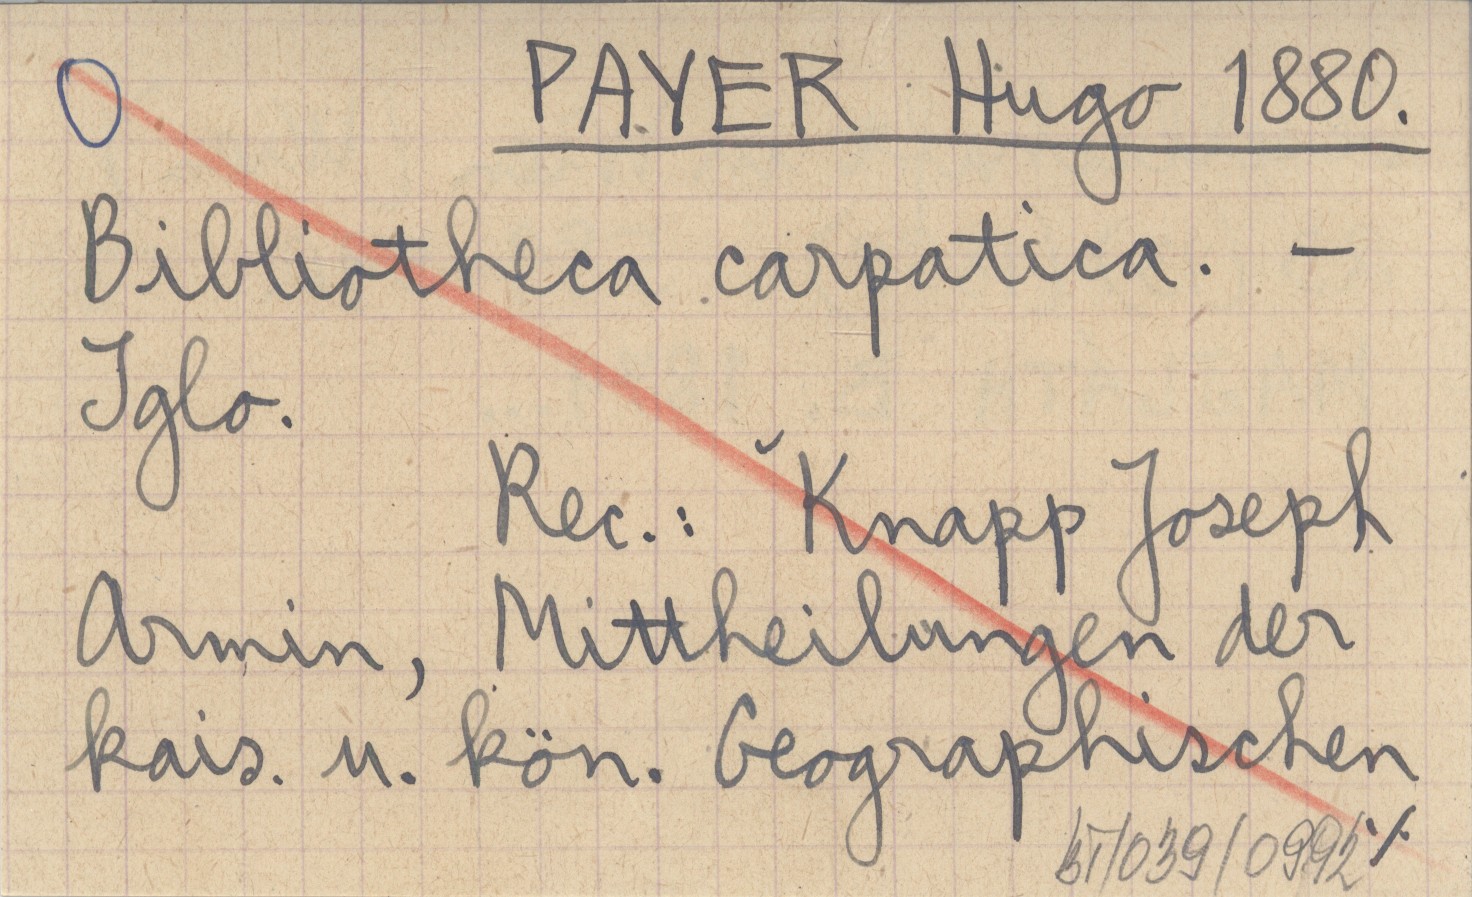 O PAYER Hugo 1880.
Bibliotheca carpatica. —
Iglo.
Rec.: Knapp Joseph
Armin, Mittheilungen der
kais. u. kön. Geographischen
./.
BT/039/0992